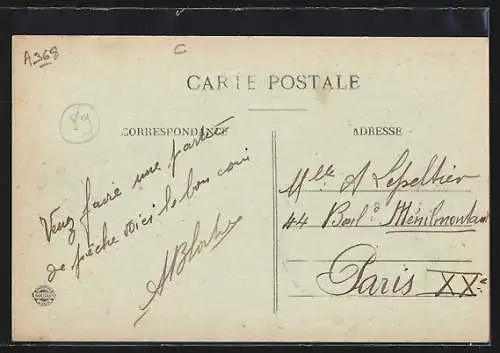 A368
C
CARTE POSTALE
89
CORRESPONDANCE
ADRESSE
Venez faire une partie
de pêche voici le bon coin
Mlle A Lepeltier
44 Boul. d Ménilmontant
Paris XXe